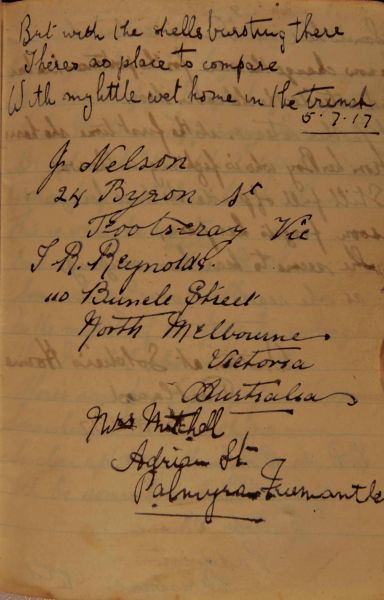 But with the shells bursting there
Theres no place to compare
With my little wet home in the trench
5.7.17
J Nelson
24 Byron St
Footscray Vic
T. R. Reynolds.
110 Buncle Street
North Melbourne
Victoria
Australia
Mrs Mitchell
Adrian St
Palmyra Fremantle